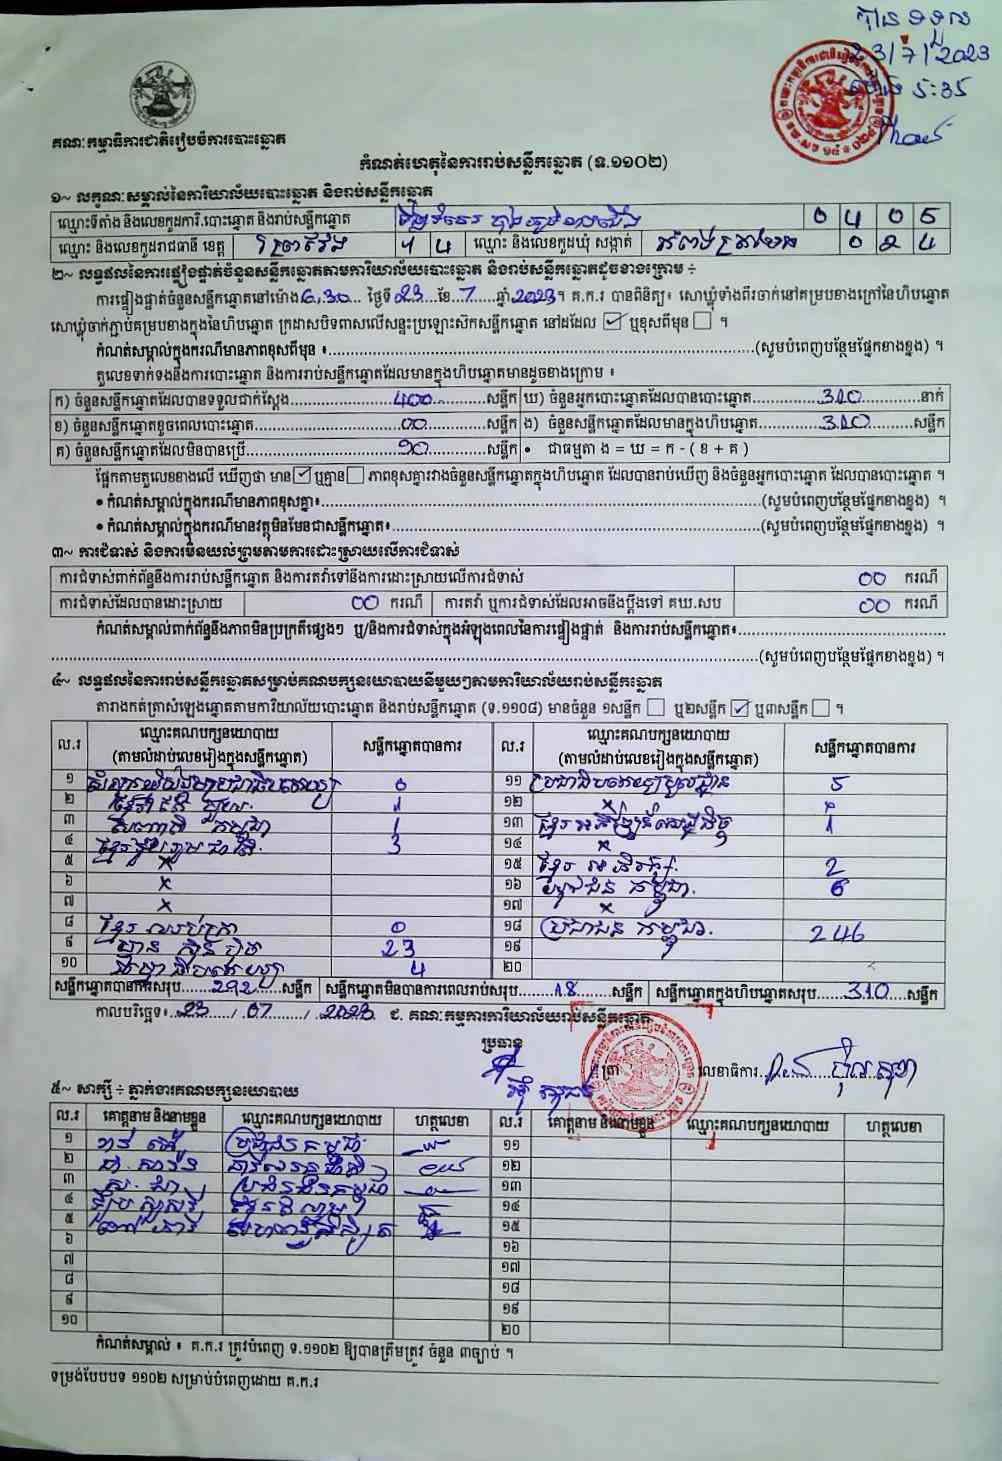 បានទទួល
23/7/2023
ម៉ោង ៩:35
គណៈកម្មាធិការជាតិរៀបចំការបោះឆ្នោត
កំណត់ហេតុនៃការរាប់សន្លឹកឆ្នោត (ទ.១១០២)
១~ លក្ខណៈសម្គាល់នៃការិយាល័យបោះឆ្នោត និងរាប់សន្លឹកឆ្នោត
ឈ្មោះទីតាំង និងលេខកូដការិ.បោះឆ្នោត និងរាប់សន្លឹកឆ្នោត 0 4 0 5
ឈ្មោះ និងលេខកូដរាជធានី ខេត្ត ព្រៃវែង 1 4 ឈ្មោះ និងលេខកូដឃុំ សង្កាត់ 0 2 4
២~ លទ្ធផលនៃការផ្ទៀងផ្ទាត់ចំនួនសន្លឹកឆ្នោតតាមការិយាល័យបោះឆ្នោត និងរាប់សន្លឹកឆ្នោតដូចខាងក្រោម ÷
ការផ្ទៀងផ្ទាត់ចំនួនសន្លឹកឆ្នោតនៅម៉ោង 6:30 ថ្ងៃទី 23 ខែ 7 ឆ្នាំ 2023 ។ គ.ក.រ បានពិនិត្យ៖ សោឃ្លុំទាំងពីរចាក់នៅគម្របខាងក្រៅនៃហិបឆ្នោត
សោឃ្លុំចាក់ភ្ជាប់គម្របខាងក្នុងនៃហិបឆ្នោត ក្រដាសបិទពាសលើសន្ទះប្រឡោះសិកសន្លឹកឆ្នោត នៅដដែល ☑ ឬខុសពីមុន ☐ ។
កំណត់សម្គាល់ក្នុងករណីមានភាពខុសពីមុន ៖ (សូមបំពេញបន្ថែមផ្នែកខាងខ្នង) ។
តួលេខទាក់ទងនឹងការបោះឆ្នោត និងការរាប់សន្លឹកឆ្នោតដែលមានក្នុងហិបឆ្នោតមានដូចខាងក្រោម ៖
ក) ចំនួនសន្លឹកឆ្នោតដែលបានទទួលជាក់ស្តែង 400 សន្លឹក ឃ) ចំនួនអ្នកបោះឆ្នោតដែលបានបោះឆ្នោត 310 នាក់
ខ) ចំនួនសន្លឹកឆ្នោតខូចពេលបោះឆ្នោត 00 សន្លឹក ង) ចំនួនសន្លឹកឆ្នោតដែលមានក្នុងហិបឆ្នោត 310 សន្លឹក
គ) ចំនួនសន្លឹកឆ្នោតដែលមិនបានប្រើ 90 សន្លឹក • ជាធម្មតា ង = ឃ = ក - ( ខ + គ )
ផ្អែកតាមតួលេខខាងលើ ឃើញថា មាន ☑ ឬគ្មាន ☐ ភាពខុសគ្នារវាងចំនួនសន្លឹកឆ្នោតក្នុងហិបឆ្នោត ដែលបានរាប់ឃើញ និងចំនួនអ្នកបោះឆ្នោត ដែលបានបោះឆ្នោត ។
• កំណត់សម្គាល់ក្នុងករណីមានភាពខុសគ្នា៖ (សូមបំពេញបន្ថែមផ្នែកខាងខ្នង) ។
• កំណត់សម្គាល់ក្នុងករណីមានវត្ថុមិនមែនជាសន្លឹកឆ្នោត៖ (សូមបំពេញបន្ថែមផ្នែកខាងខ្នង) ។
៣~ ការជំទាស់ និងការមិនយល់ព្រមតាមការដោះស្រាយលើការជំទាស់
ការជំទាស់ពាក់ព័ន្ធនឹងការរាប់សន្លឹកឆ្នោត និងការតវ៉ាទៅនឹងការដោះស្រាយលើការជំទាស់ 00 ករណី
ការជំទាស់ដែលបានដោះស្រាយ 00 ករណី ការតវ៉ា ឬការជំទាស់ដែលអាចនឹងប្តឹងទៅ គឃ.សប 00 ករណី
កំណត់សម្គាល់ពាក់ព័ន្ធនឹងភាពមិនប្រក្រតីផ្សេងៗ ឬ/និងការជំទាស់ក្នុងអំឡុងពេលនៃការផ្ទៀងផ្ទាត់ និងការរាប់សន្លឹកឆ្នោត៖
(សូមបំពេញបន្ថែមផ្នែកខាងខ្នង) ។
៤~ លទ្ធផលនៃការរាប់សន្លឹកឆ្នោតសម្រាប់គណបក្សនយោបាយនីមួយៗតាមការិយាល័យរាប់សន្លឹកឆ្នោត
តារាងកត់ត្រាសំឡេងឆ្នោតតាមការិយាល័យបោះឆ្នោត និងរាប់សន្លឹកឆ្នោត (ទ.១១០៨) មានចំនួន ១សន្លឹក ☐ ឬ២សន្លឹក ☑ ឬ៣សន្លឹក ☐ ។
ល.រ ឈ្មោះគណបក្សនយោបាយ (តាមលំដាប់លេខរៀងក្នុងសន្លឹកឆ្នោត) សន្លឹកឆ្នោតបានការ ល.រ ឈ្មោះគណបក្សនយោបាយ (តាមលំដាប់លេខរៀងក្នុងសន្លឹកឆ្នោត) សន្លឹកឆ្នោតបានការ
១ 0 ១១ ប្រជាធិបតេយ្យមូលដ្ឋាន 5
២ 1 ១២ x
៣ កម្ពុជា 1 ១៣ ខ្មែរអភិវឌ្ឍន៍សេដ្ឋកិច្ច 1
៤ ខ្មែររួបរួមជាតិ 3 ១៤ x
៥ x ១៥ ខ្មែរ 2
៦ x ១៦ យុវជន កម្ពុជា 6
៧ x ១៧ x
៨ ខ្មែរ 0 ១៨ ប្រជាជន កម្ពុជា 246
៩ ហ៊្វុនស៊ិនប៉ិច 23 ១៩
១០ 4 ២០
សន្លឹកឆ្នោតបានការសរុប 292 សន្លឹក សន្លឹកឆ្នោតមិនបានការពេលរាប់សរុប 18 សន្លឹក សន្លឹកឆ្នោតក្នុងហិបឆ្នោតសរុប 310 សន្លឹក
កាលបរិច្ឆេទ៖ 23 / 07 / 2023 ជ. គណៈកម្មការការិយាល័យរាប់សន្លឹកឆ្នោត
ប្រធាន
ត្រា លេខាធិការ
៥~ សាក្សី ÷ ភ្នាក់ងារគណបក្សនយោបាយ
ល.រ គោត្តនាម និងនាមខ្លួន ឈ្មោះគណបក្សនយោបាយ ហត្ថលេខា ល.រ គោត្តនាម និងនាមខ្លួន ឈ្មោះគណបក្សនយោបាយ ហត្ថលេខា
១ ប្រជាជនកម្ពុជា ១១
២ ១២
៣ ប្រជាជនកម្ពុជា ១៣
៤ ១៤
៥ ១៥
៦ ១៦
៧ ១៧
៨ ១៨
៩ ១៩
១០ ២០
កំណត់សម្គាល់ ៖ គ.ក.រ ត្រូវបំពេញ ទ.១១០២ ឱ្យបានត្រឹមត្រូវ ចំនួន ៣ច្បាប់ ។
ទម្រង់បែបបទ ១១០២ សម្រាប់បំពេញដោយ គ.ក.រ